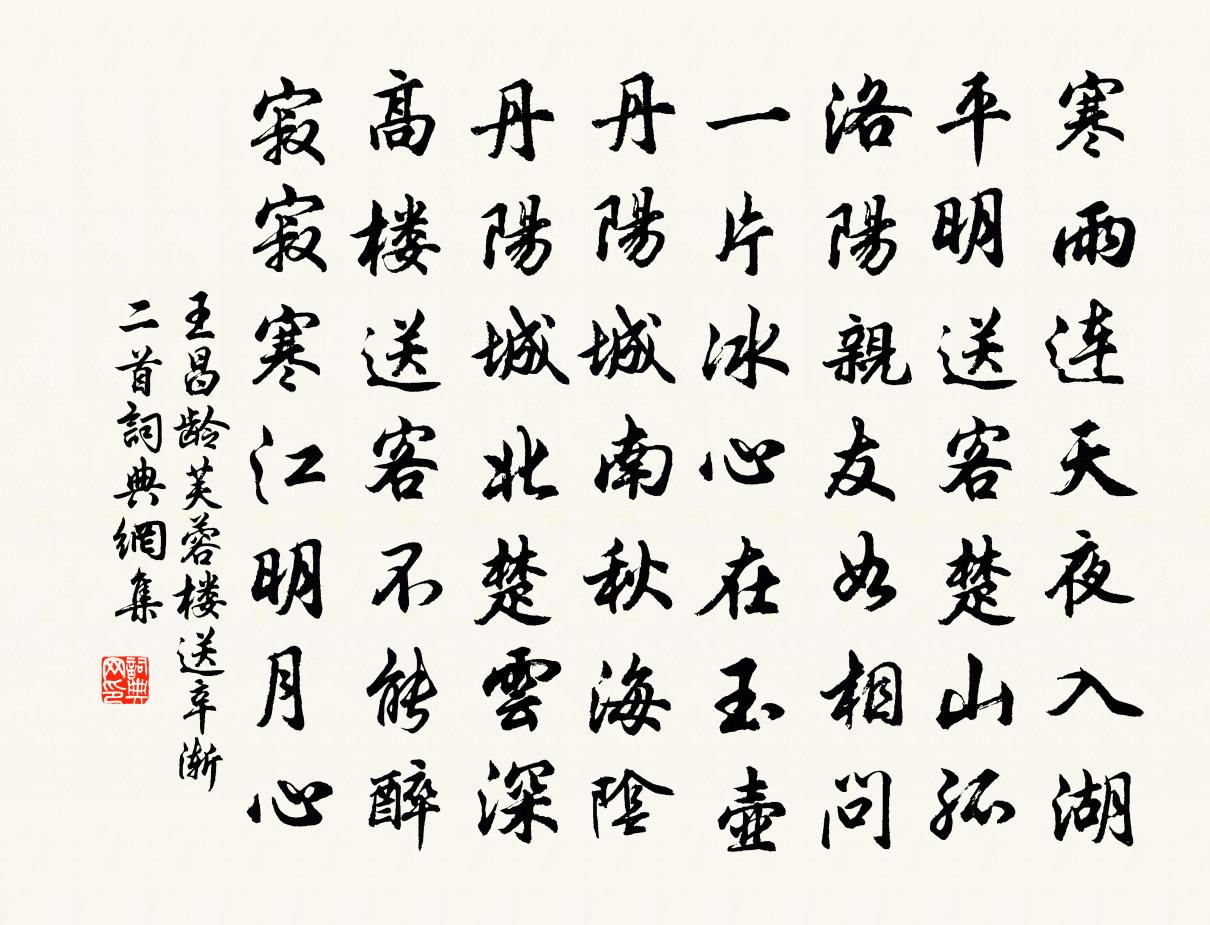 寒雨連天夜入湖
平明送客楚山孤
洛陽親友如相問
一片冰心在玉壺
丹陽城南秋海陰
丹陽城北楚雲深
高楼送客不能醉
寂寂寒江明月心
王昌龄芙蓉楼送辛渐
二首詞典網集
詞典
网印